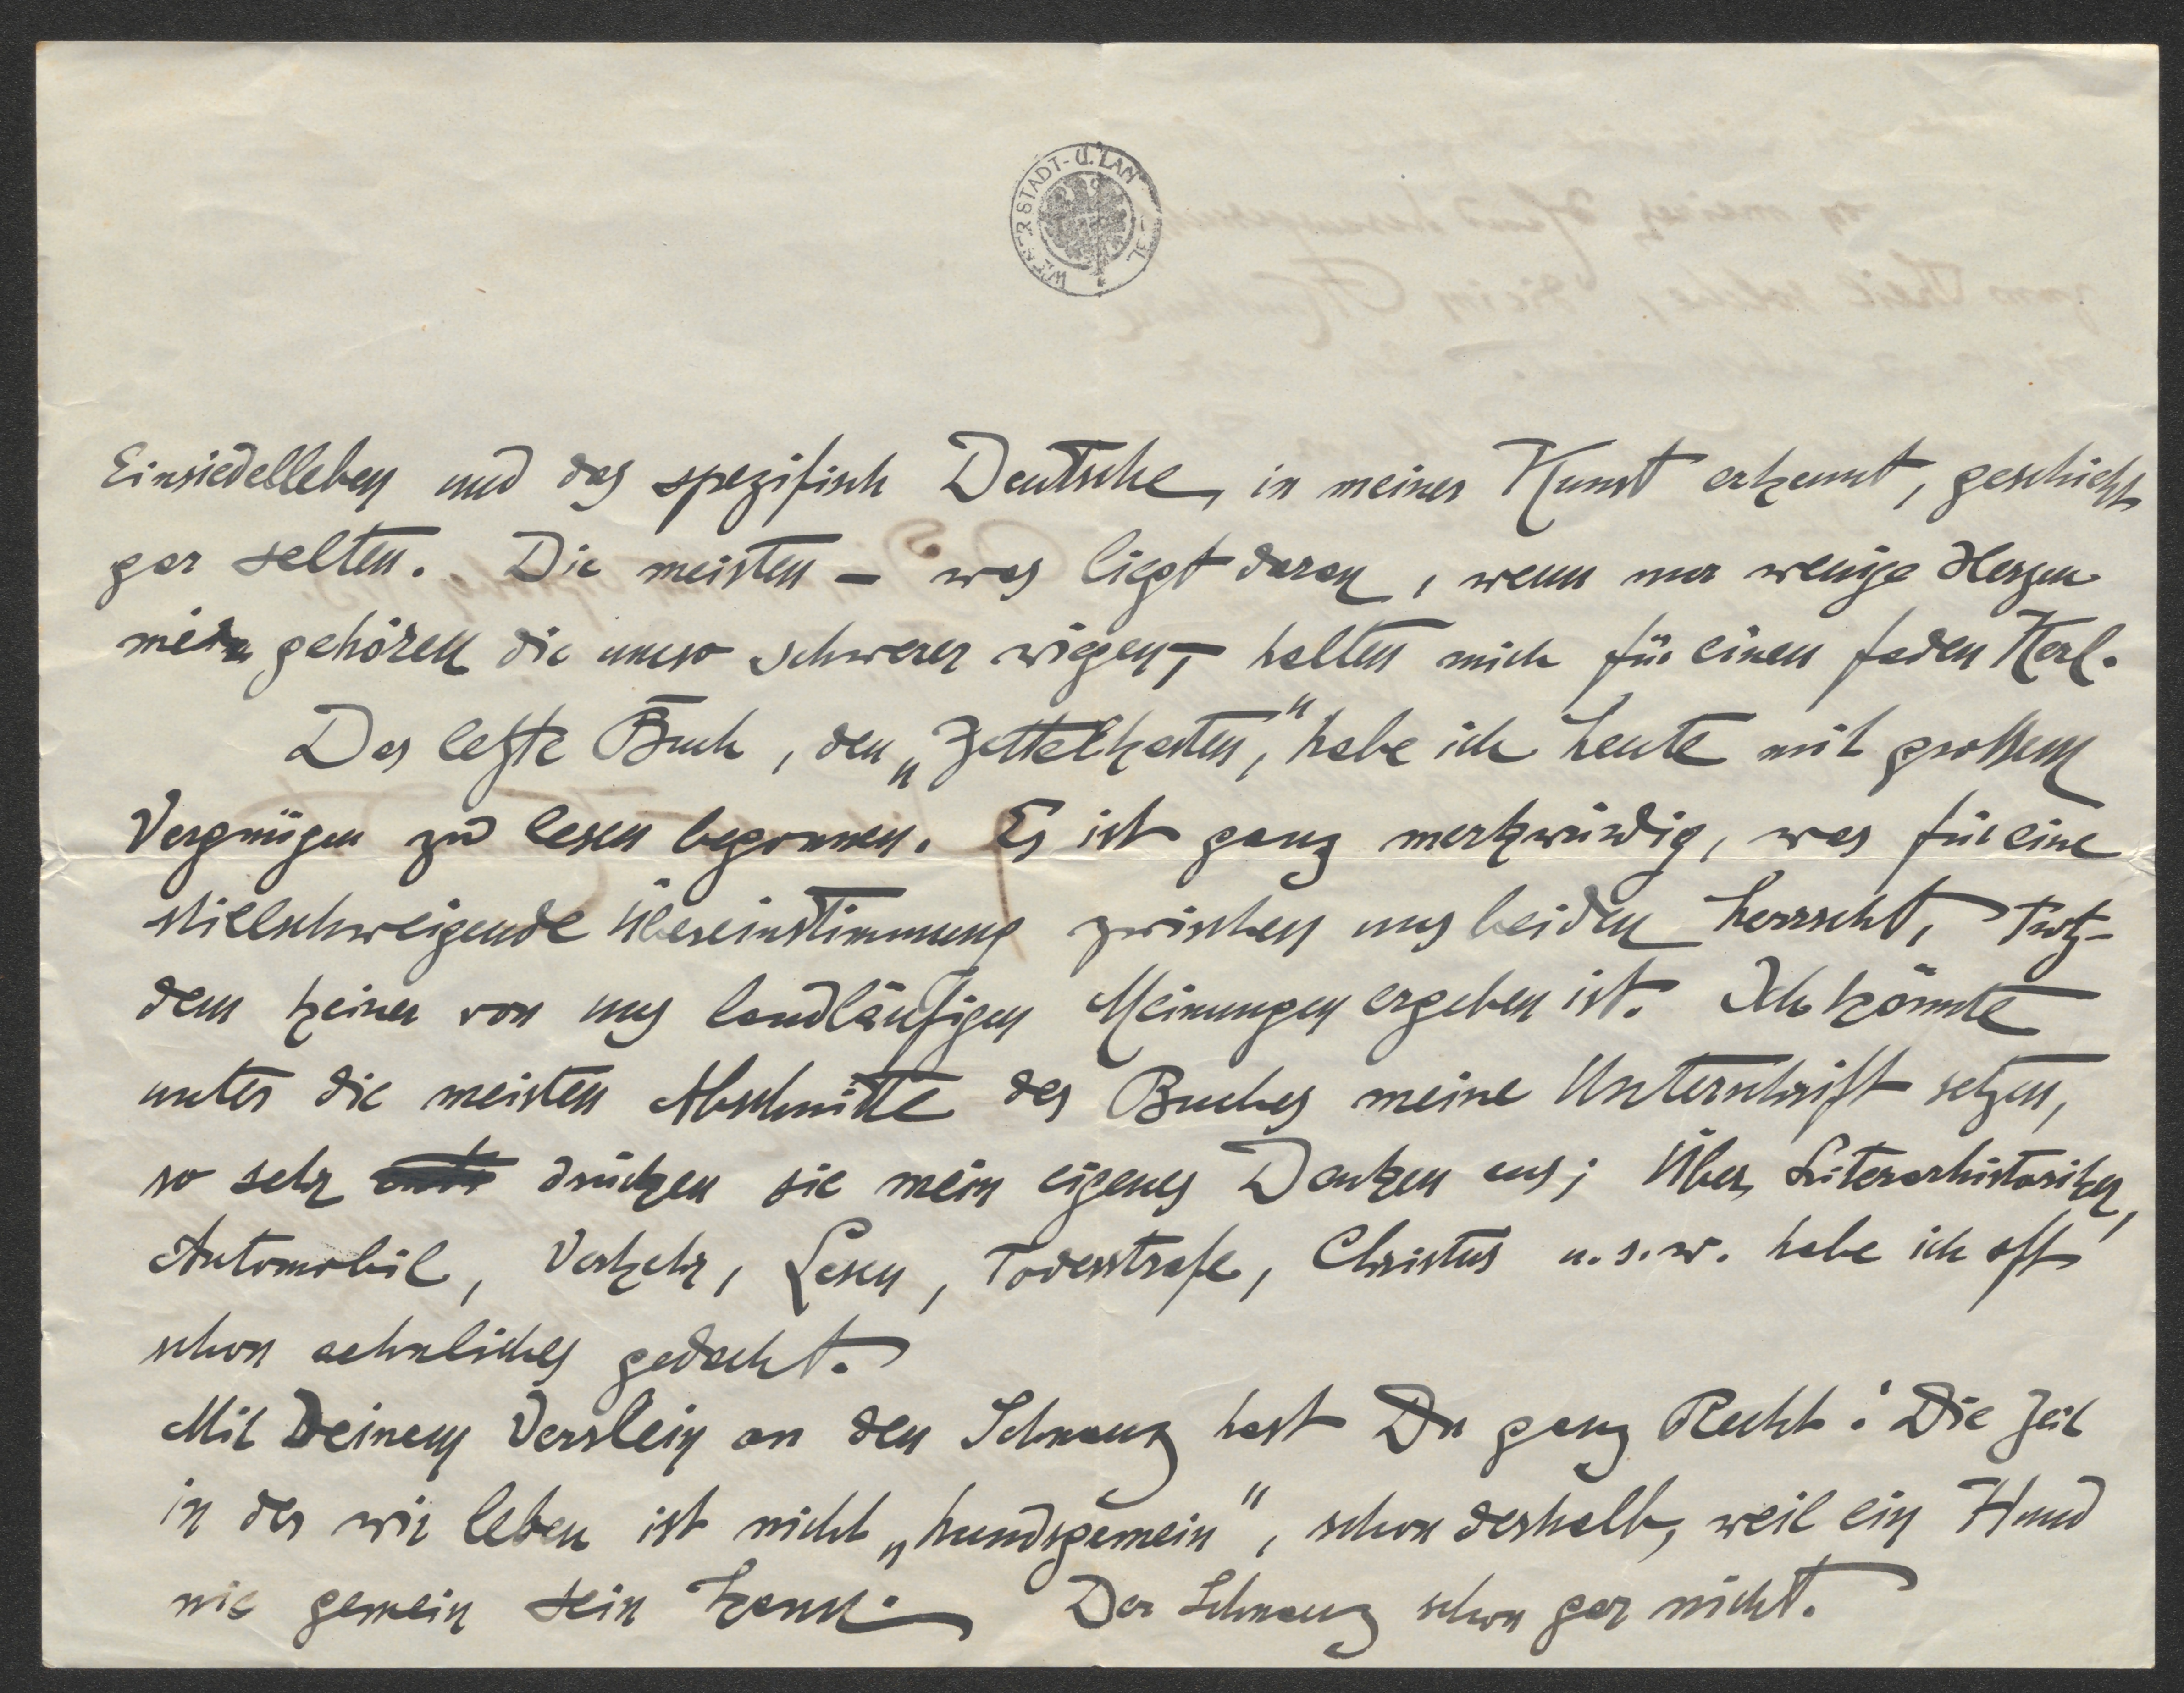 WIENER STADT- U. LAN
Einsiedelleben und das spezifisch Deutsche, in meiner Kunst erkennt, geschieht
gar selten. Die meisten – was liegt daran, wenn nur wenige Herzen
mein gehören die umso schwerer wiegen, – halten mich für einen faden Kerl.
Das letzte Buch, den „Zettelkasten," habe ich heute mit großem
Vergnügen zu lesen begonnen. Es ist ganz merkwürdig, was für eine
stillschweigende Übereinstimmung zwischen uns beiden herrscht, Trotz-
dem keiner von uns landläufigen Meinungen ergeben ist. Ich könnte
unter die meisten Abschnitte des Buches meine Unterschrift setzen,
so sehr drücken sie mein eigenes Denken aus; Über Literarhistoriker,
Automobil, Verkehr, Lesen, Todesstrafe, Christus u.s.w. habe ich oft
schon aehnliches gedacht.
Mit Deinem Verslein an den Schnauz hast Du ganz Recht: Die Zeit
in der wir leben ist nicht „hundsgemein", schon deshalb, weil ein Hund
nie gemein sein kann. Der Schnauz schon gar nicht.